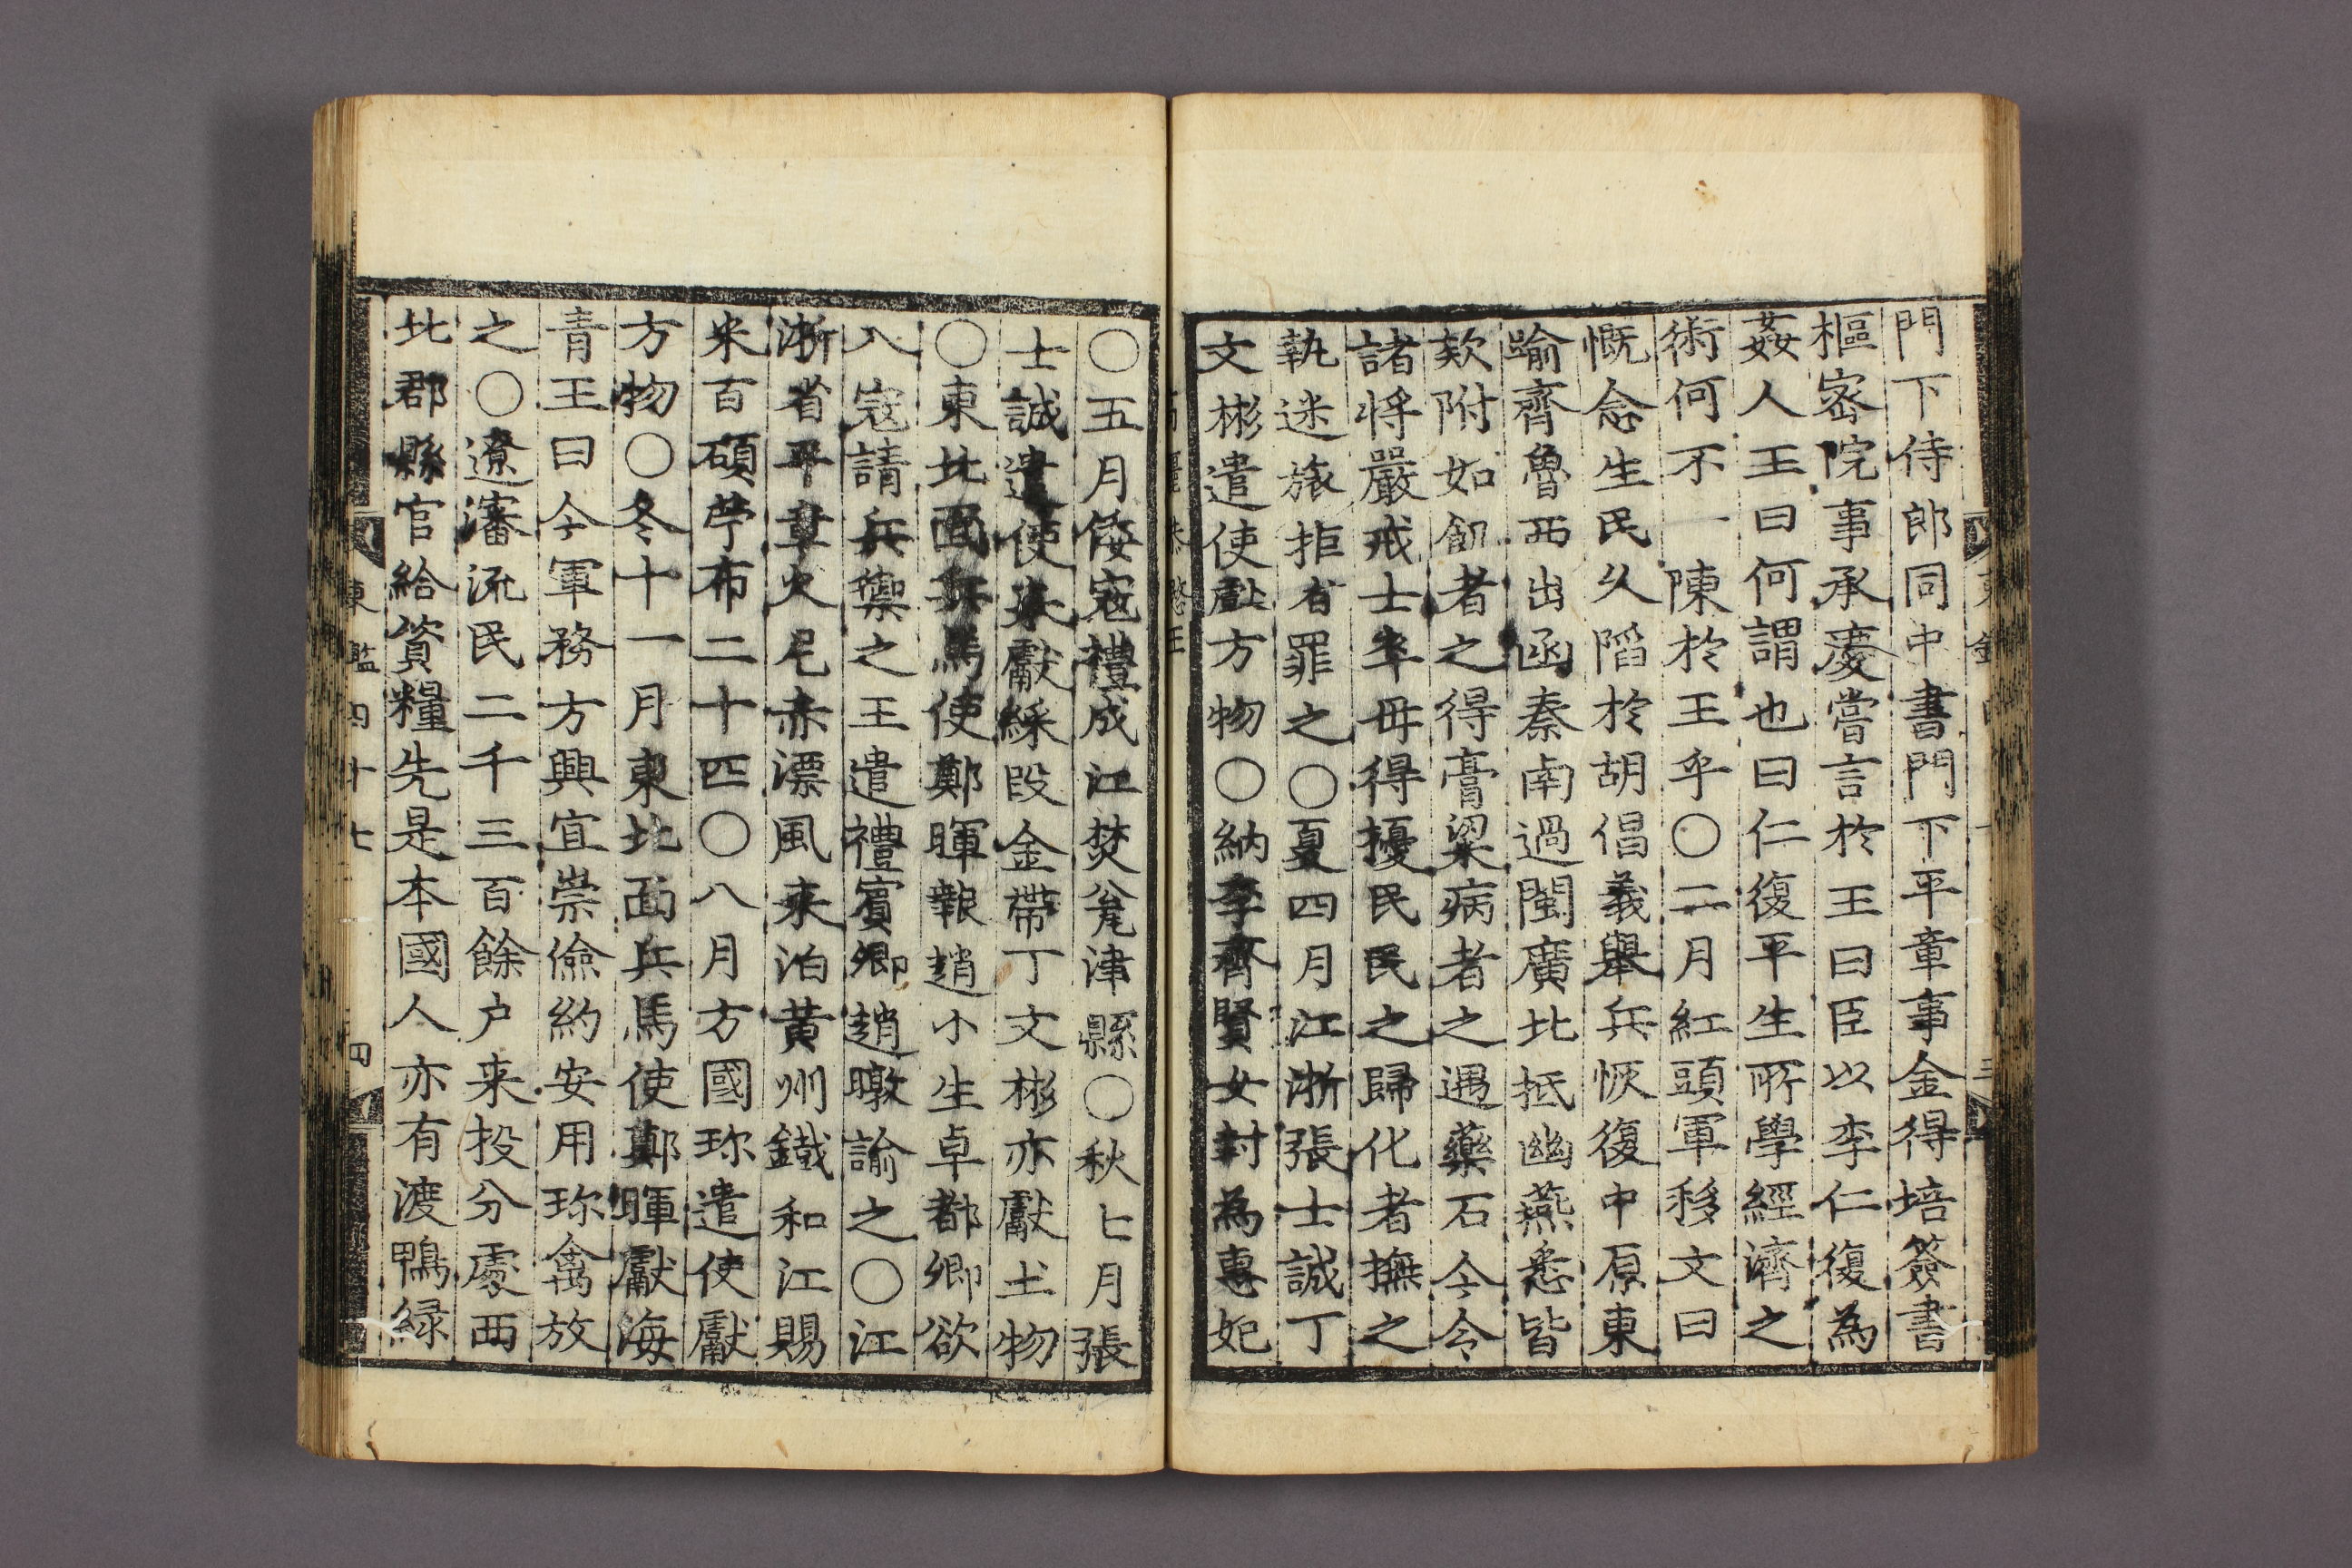 門下侍郎同中書門下平章事金得培簽書
樞密院事承慶嘗言於王曰臣以李仁復為
姦人王曰何謂也曰仁復平生所學經濟之
術何不一陳於王乎〇二月紅頭軍移文曰
慨念生民久陷於胡倡義舉兵恢復中原東
踰齊魯西出函秦南過閩廣北抵幽燕悉皆
欵附如飢者之得膏粱病者之遇藥石今令
諸将嚴戒士卒毋得擾民民之歸化者撫之
執迷旅拒者罪之〇夏四月江浙張士誠丁
文彬遣使獻方物〇納李齊賢女封為惠妃
〇五月倭寇禮成江焚瓮津縣〇秋七月張
士誠遣使来獻綵段金帶丁文彬亦獻土物
〇東北面兵馬使鄭暉報趙小生卓都卿欲
入寇請兵禦之王遣禮賓卿趙暾諭之〇江
浙省平章火尼赤漂風来泊黃州鐵和江賜
米百碩苧布二十四〇八月方國珎遣使獻
方物〇冬十一月東北面兵馬使鄭暉獻海
青王曰今軍務方興宜崇儉約安用珎禽放
之〇遼瀋流民二千三百餘户来投分處西
北郡縣官給資糧先是本國人亦有渡鴨綠
東監四十七
四